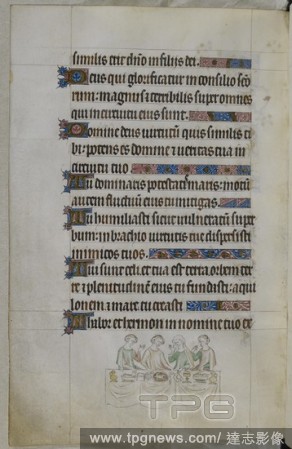 similis erit dño in filijs dei.
Deus qui glorificatur in consilio scõ
rum: magnus ⁊ terribilis super omnes
qui in circuitu eius sunt.
Domine deus uirtutū quis similis ti
bi: potens es domine ⁊ ueritas tua in
circuitu tuo
Tu dominaris potestati maris: motū
autem fluctuū eius tu mitigas.
Tu humiliasti sicut uulneratū super
bum: in brachio uirtutis tue dispersisti
inimicos tuos.
Tui sunt celi et tua est terra orbem ter
re ⁊ plenitudinē eius tu fundasti: aqui
lonem ⁊ mare tu creasti
Thabor et hermon in nomine tuo ex
TPG
www.tpgnews.com/ 達志影像